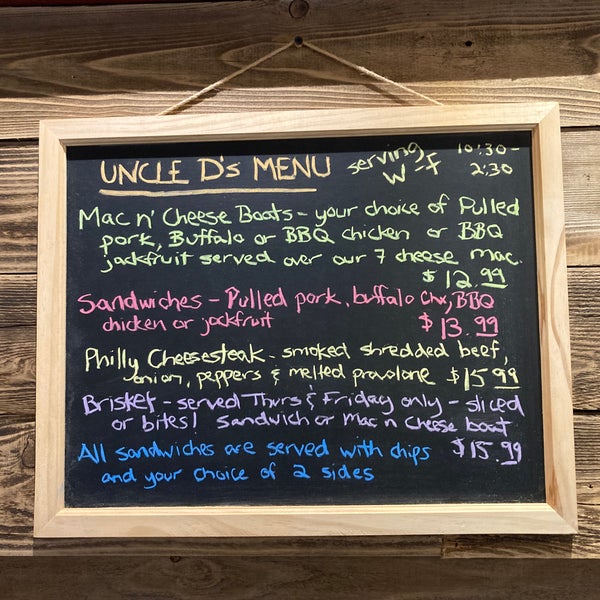 UNCLE D's MENU serving W-F 10:30-2:30
Mac n' Cheese Boats - your choice of Pulled
pork, Buffalo or BBQ chicken or BBQ
jackfruit served over our 7 cheese mac.
$12.99
Sandwiches - Pulled pork, buffalo chx, BBQ
chicken or jackfruit $13.99
Philly Cheesesteak - smoked shredded beef,
onion, peppers & melted provolone $15.99
Brisket - served Thurs & Friday only - sliced
or bites! Sandwich or Mac n Cheese boat
$15.99
All sandwiches are served with chips
and your choice of 2 sides